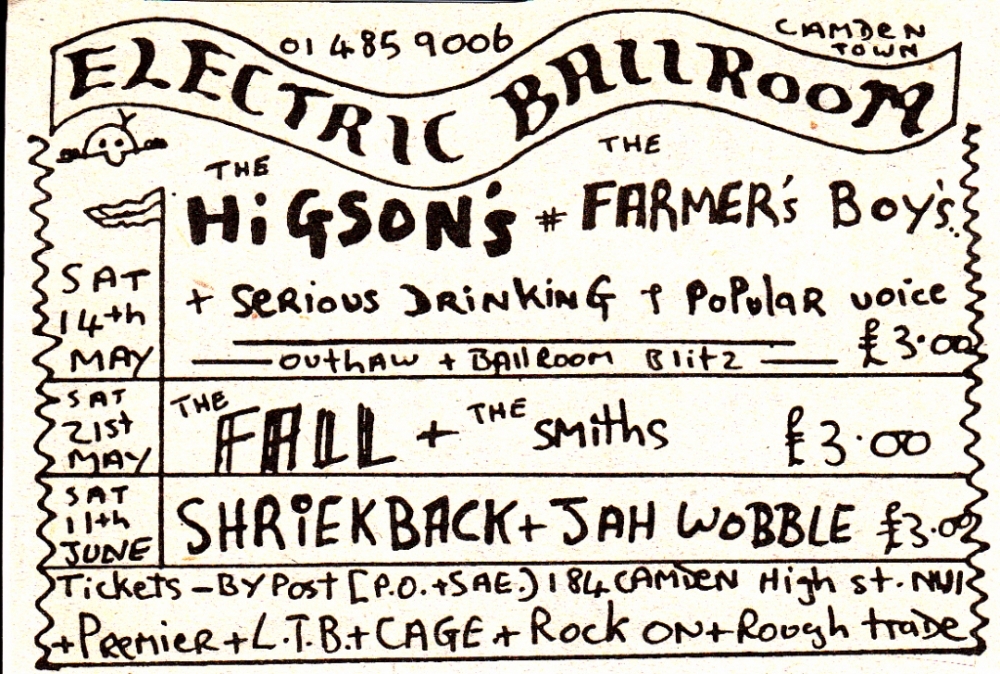 01 485 9006
CAMDEN TOWN
ELECTRIC BALLROOM
THE HiGSON's # THE FARMER's BOY's..
+ SERIOUS DRINKING + POPULAR VOICE
SAT 14th MAY
£3.00
OUTHAW + BALLROOM BLITZ
SAT 21st MAY
THE FALL + THE SMiths £3.00
SAT 11th JUNE
SHRiEKBACK + JAH WOBBLE £3.00
Tickets - BY POST [P.O. + SAE.) 184 CAMDEN High st. NW1
+ PREMIER + L.T.B. + CAGE + ROCK ON + Rough trade